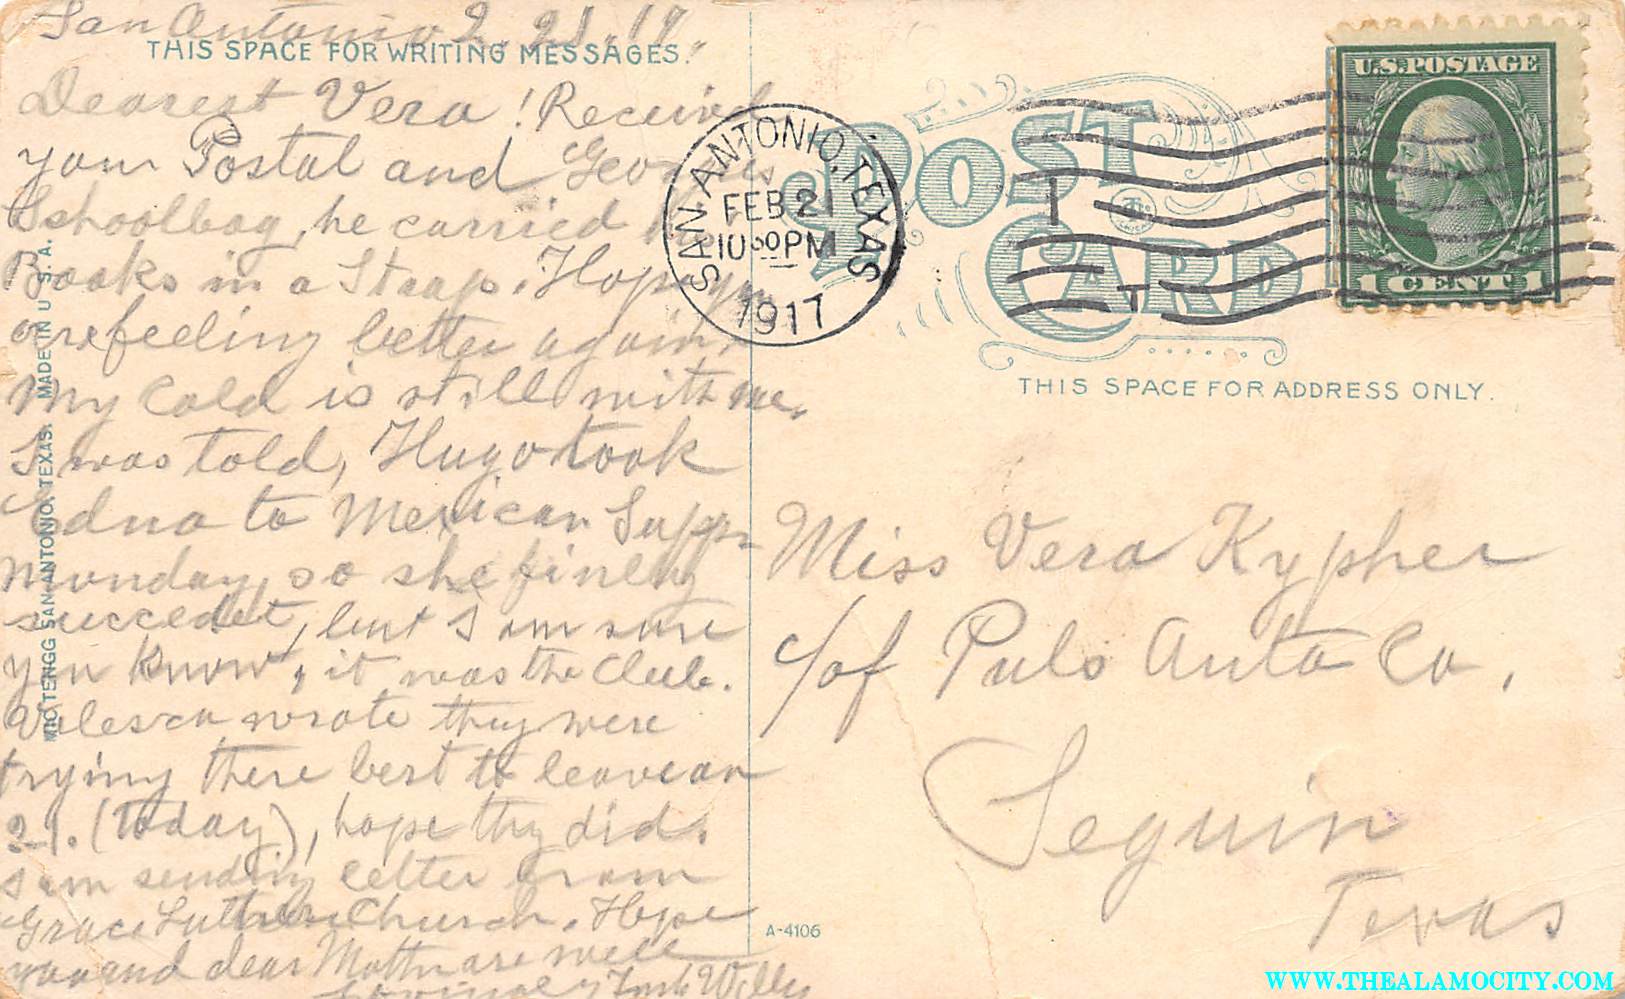 San Antonio 2.21.17.
THIS SPACE FOR WRITING MESSAGES.
Dearest Vera! Received
your Postal and Georges
Schoolbag, he carried the
Books in a Strap. Hope you
are feeling better again.
My Cold is still with me.
I was told, Hugo took
Edna to Mexican Supper
Monday, so she finely
succedet, but I am sure
you know, it was the Club.
Valesca wrote they were
trying there best to leave on
21. (Today), hope they did.
I am sending letter from
Grace Lutheran Church. Hope
you and dear Mother are well
Lovingly Willy
MIC TENGG SAN ANTONIO, TEXAS. MADE IN U. S. A.
SAN ANTONIO, TEXAS
FEB 21
10 30 PM
1917
POST
CARD
U.S. POSTAGE
1 CENT 1
THIS SPACE FOR ADDRESS ONLY.
Miss Vera Kypher
c/of Puls Auto Co,
Seguin
Texas
A-4106
WWW.THEALAMOCITY.COM